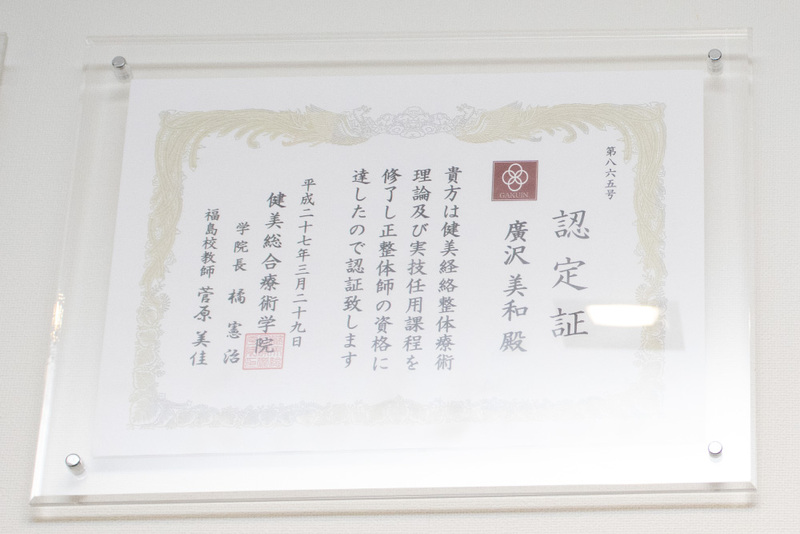 第八六五号
認定証
GAKUIN
廣沢美和殿
貴方は健美経絡整体療術
理論及び実技任用課程を
修了し正整体師の資格に
達したので認証致します
平成二十七年三月二十九日
健美総合療術学院
学院長 橘憲治
福島校教師 菅原美佳